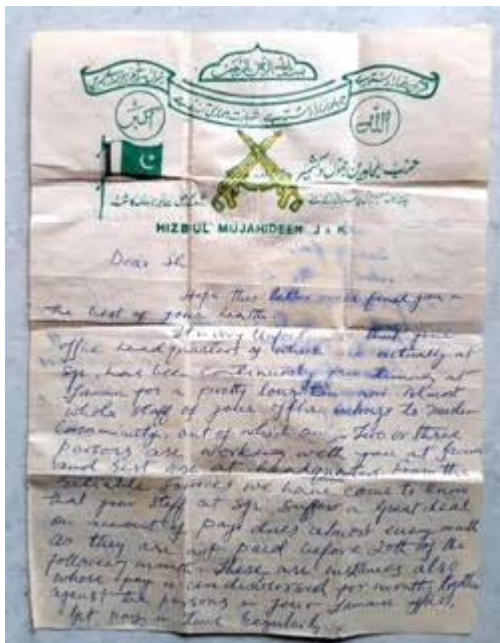 بسم اللہ الرحمن الرحیم
اللہ
اکبر
حزب المجاہدین جموں و کشمیر
HIZBUL MUJAHIDEEN J & K
Dear Sh
Hope this letter will find you in
the best of your health.
It is very that your
office headquarters of which are actually at
Sgr, has been continuously functioning at
Jammu for a pretty long time now almost
whole staff of your office belongs to
community, out of which only two or three
persons are working with you at Jammu
and rest are at headquarter. From the
reliable sources we have come to know
that your staff at Sgr suffer a great deal
on account of pay dues almost every month
as they are not paid before 20th of the
following month. There are instances also
where pay is undisbursed for months together
against the persons in your Jammu office,
get pay in time regularly.